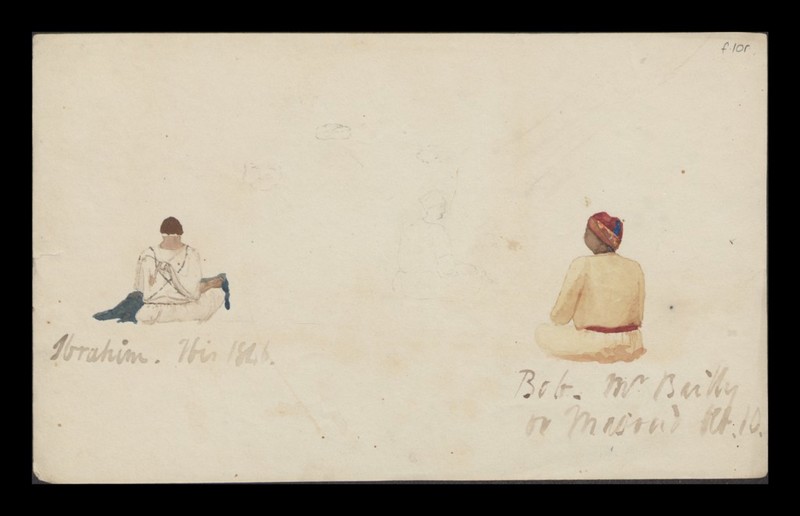 f.10r
Ibrahim. Ibis 1846.
Bob. Mr Bailly
or Masoud Oct. 10.